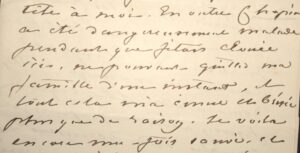 tête à mois. En outre Chapin
a été dangereusement malade
pendant que j'étais clouée
ici, ne pouvant quitter ma
famille d'une instant, et
tout cela m'a
plus que de raison. Te voilà
encore une fois